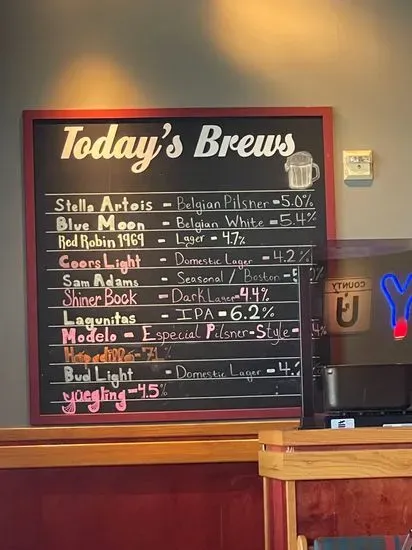 Today's Brews
Stella Artois - Belgian Pilsner - 5.0%
Blue Moon - Belgian White - 5.4%
Red Robin 1969 - Lager - 4.7%
Coors Light - Domestic Lager - 4.2%
Sam Adams - Seasonal / Boston - 5
Shiner Bock - Dark Lager - 4.4%
Lagunitas - IPA - 6.2%
Modelo - Especial Pilsner-Style - 4%
Bud Light - Domestic Lager - 4.2
yuegling - 4.5%
COUNTY
U
Y